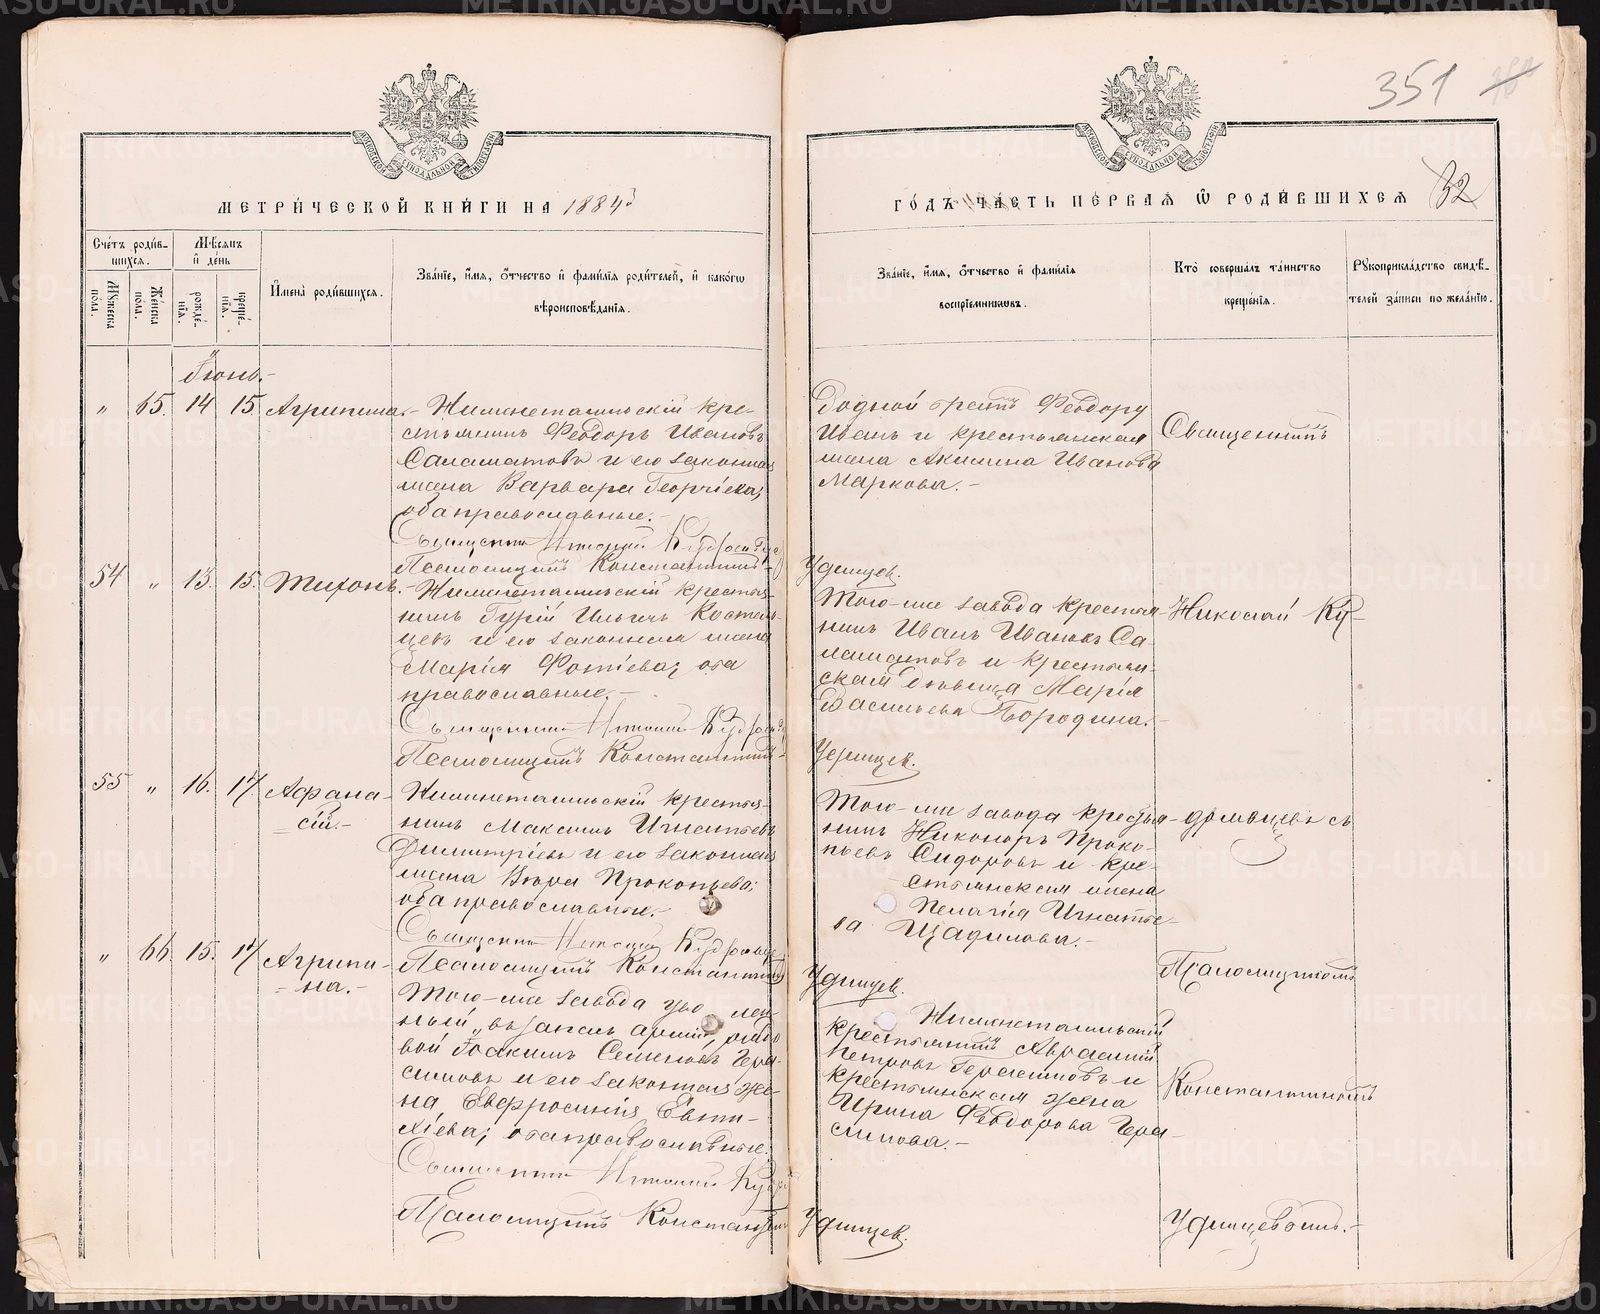 351
МЕТРИЧЕСКОЙ КНИГИ НА 1884
ГОДЪ ЧАСТЬ ПЕРВАЯ Ѿ РОДИВШИХСЯ 32
Счетъ родившихся.
Мѣсяцъ и день
Мужеска пола.
Женска пола.
рожденія.
крещенія.
Имена родившихся.
Званіе, имя, отчество и фамилія родителей, и какогѡ
вѣроисповѣданія.
Званіе, имя, отчество и фамилія
воспріемниковъ.
Кто совершалъ таинство
крещенія.
Рукоприкладство свидѣтелей записи по желанію.
Іюнь.-
„ 65. 14 15 Агрипина.- Нижнетагильскій кре-
стьянинъ Феодоръ Ивановъ
Саламатовъ и его законная
жена Варвара Георгіева;
оба православные.-
Священникъ Николай Кудрявцевъ
Псаломщикъ Константинъ
Родной братъ Феодору
Иванъ и крестьянская
жена Акилина Иванова
Маркова.-
Священникъ
Удинцев.
54 „ 13. 15. Тихонъ.- Нижнетагильскій крестья-
нинъ Гурій Ильичъ
и его законная жена
Марія Фотіева; оба
православные.-
Священникъ Николай Кудрявцевъ
Псаломщикъ Константинъ
Того-же завода крестья-
нинъ Иванъ Ивановъ Са-
ламатовъ и крестьян-
ская дѣвица Марія
Васильева Бородина.-
Николай Ку-
Удинцев.
55 „ 16. 17 Афана-
сій.-
Нижнетагильскій крестья-
нинъ Максимъ Игнатьевъ
Димитріевъ и его законная
жена Вѣра Прокопьева;
оба православные.-
Священникъ Николай Кудрявцевъ
Псаломщикъ Константинъ
Того-же завода крестья-
нинъ Никоноръ Проко-
пьевъ Сидоровъ и кре-
стьянская жена
Пелагія Игнатье-
ва Щадилова.-
дрявцевъ съ
Удинцев.
„ 66. 15. 17 Агрипи-
на.-
Того-же завода уво лен-
ный въ запасъ арміи, рядо
вой Іоакимъ Семеновъ Гера-
симовъ и его законная же-
на Евфросинія Евти-
хіева; оба православные.
Священникъ Николай Кудр
Псаломщикъ Константинъ
Нижнетагильскій
крестьянинъ Авраамій
Петровъ Герасимовъ и
крестьянская жена
Ирина Феодорова Гера-
симова.-
Псаломщикомъ
Константиномъ
Удинцев.
Удинцевымъ.-
METRIKI.GASO-URAL.RU